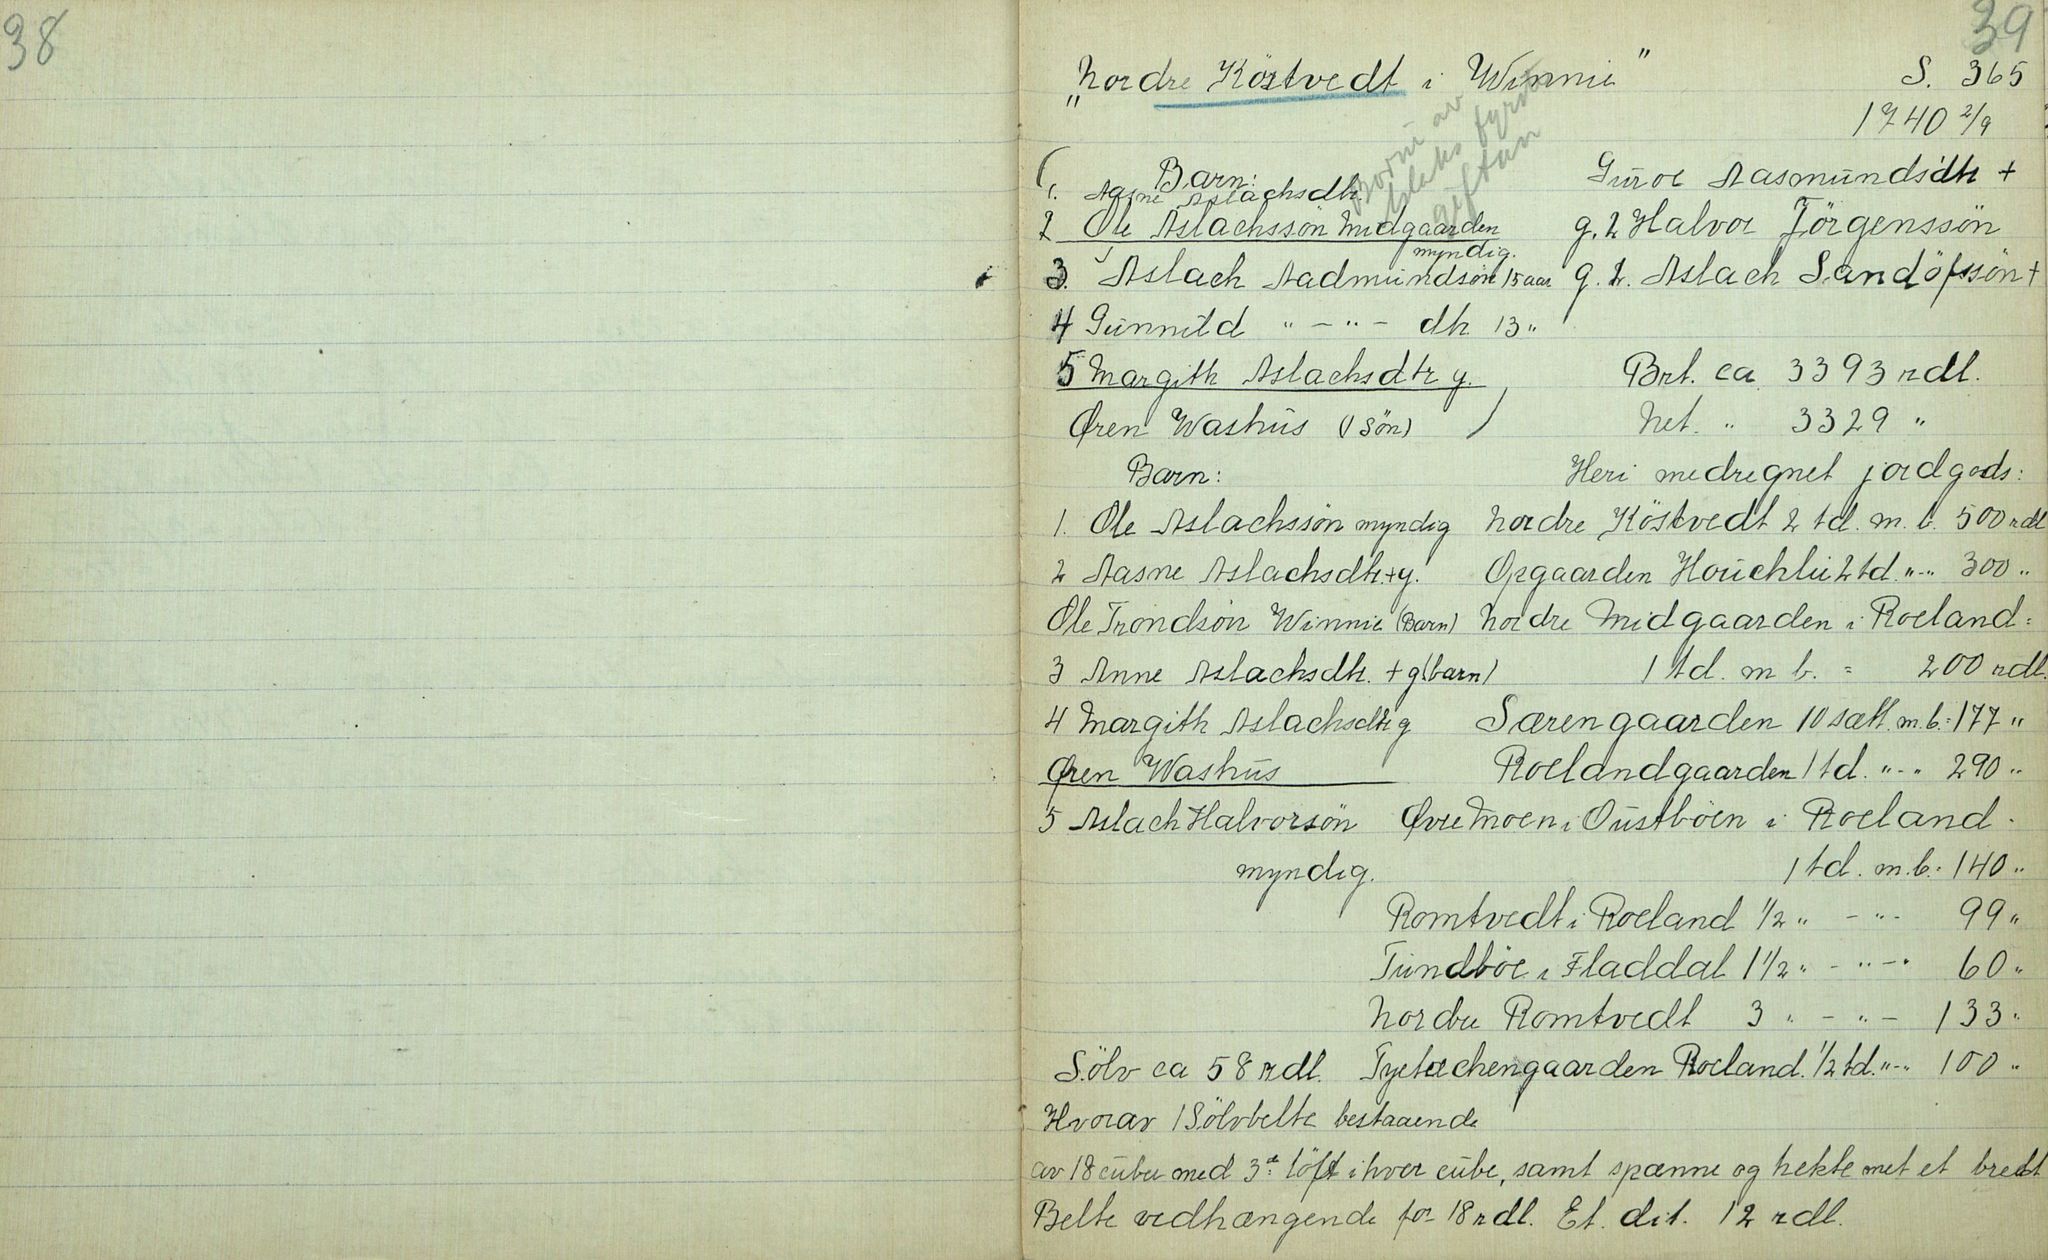 38
39
"Nordre Köstvedt i Winnie" S. 365
1740 2/9
Borni av Aslaks fyrste giftar
Barn: Guroe Aasmundsdtr +
1. Aasne Aslachsdtr.
2 Ole Aslachssön Midgaarden g. 2 Halvor Jörgenssön
myndig.
3. Aslach Aadmundsön 15 aar g. 1. Aslach Sandöfssön +
4 Gunnild " - " - dtr 13 "
5 Margith Aslachsdtr g. Brt. ca 3393 rdl.
Øren Washus (1 Sön) Net. " 3329 "
Barn: Heri medregnet jordgods:
1. Ole Aslachssön myndig Nordre Köstvedt 2 td. m. b. 500 rdl
2 Aasne Aslachsdtr + g. Opgaarden Houchlii 2 td. " - " 300 "
Ole Trondsön Winnie (Barn) Nordre Midgaarden i Roeland =
3 Anne Aslachsdtr. + g (barn) 1 td. m b. = 200 rdl.
4 Margith Aslachsdtr g Særengaarden 10 sætt. m. b. = 177 "
Øren Washus Roelandgaarden 1 td. " - " 290 "
5 Aslach Halvorsön Øvre Moen i Oustböen i Roeland.
myndig. 1 td. m. b. = 140 "
Romtvedt i Roeland 1/2 " - " - 99 "
Tundböe i Fladdal 1 1/2 " - " - " 60 "
Nordre Romtvedt 3 " - " - 133 "
Sölv ca 58 rdl. Tyetachengaarden Roeland. 1/2 td. " - " 100 "
Hvorav 1 Sölvbelte bestaaende
av 18 cuber med 3de löft i hver cube, samt spænne og hekte met et bredt
Belte vedhængende for 18 rdl. Et. dit. 12 rdl.